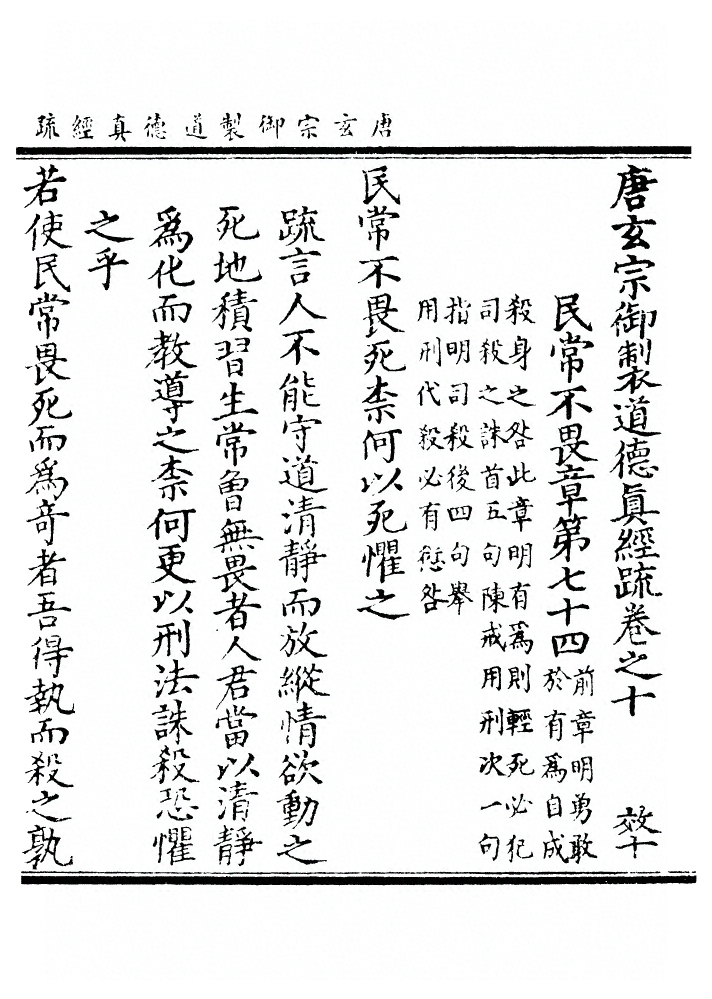 唐玄宗御製道德真經疏
唐玄宗御製道德眞經疏卷之十　效十
民常不畏章第七十四
前章明勇敢
於有爲自成
殺身之咎此章明有爲則輕死必犯
司殺之誅首五句陳戒用刑次一句
指明司殺後四句舉
用刑代殺必有愆咎
民常不畏死柰何以死懼之
疏言人不能守道清靜而放縱情欲動之
死地積習生常曾無畏者人君當以清靜
爲化而教導之柰何更以刑法誅殺恐懼
之乎
若使民常畏死而爲奇者吾得執而殺之孰